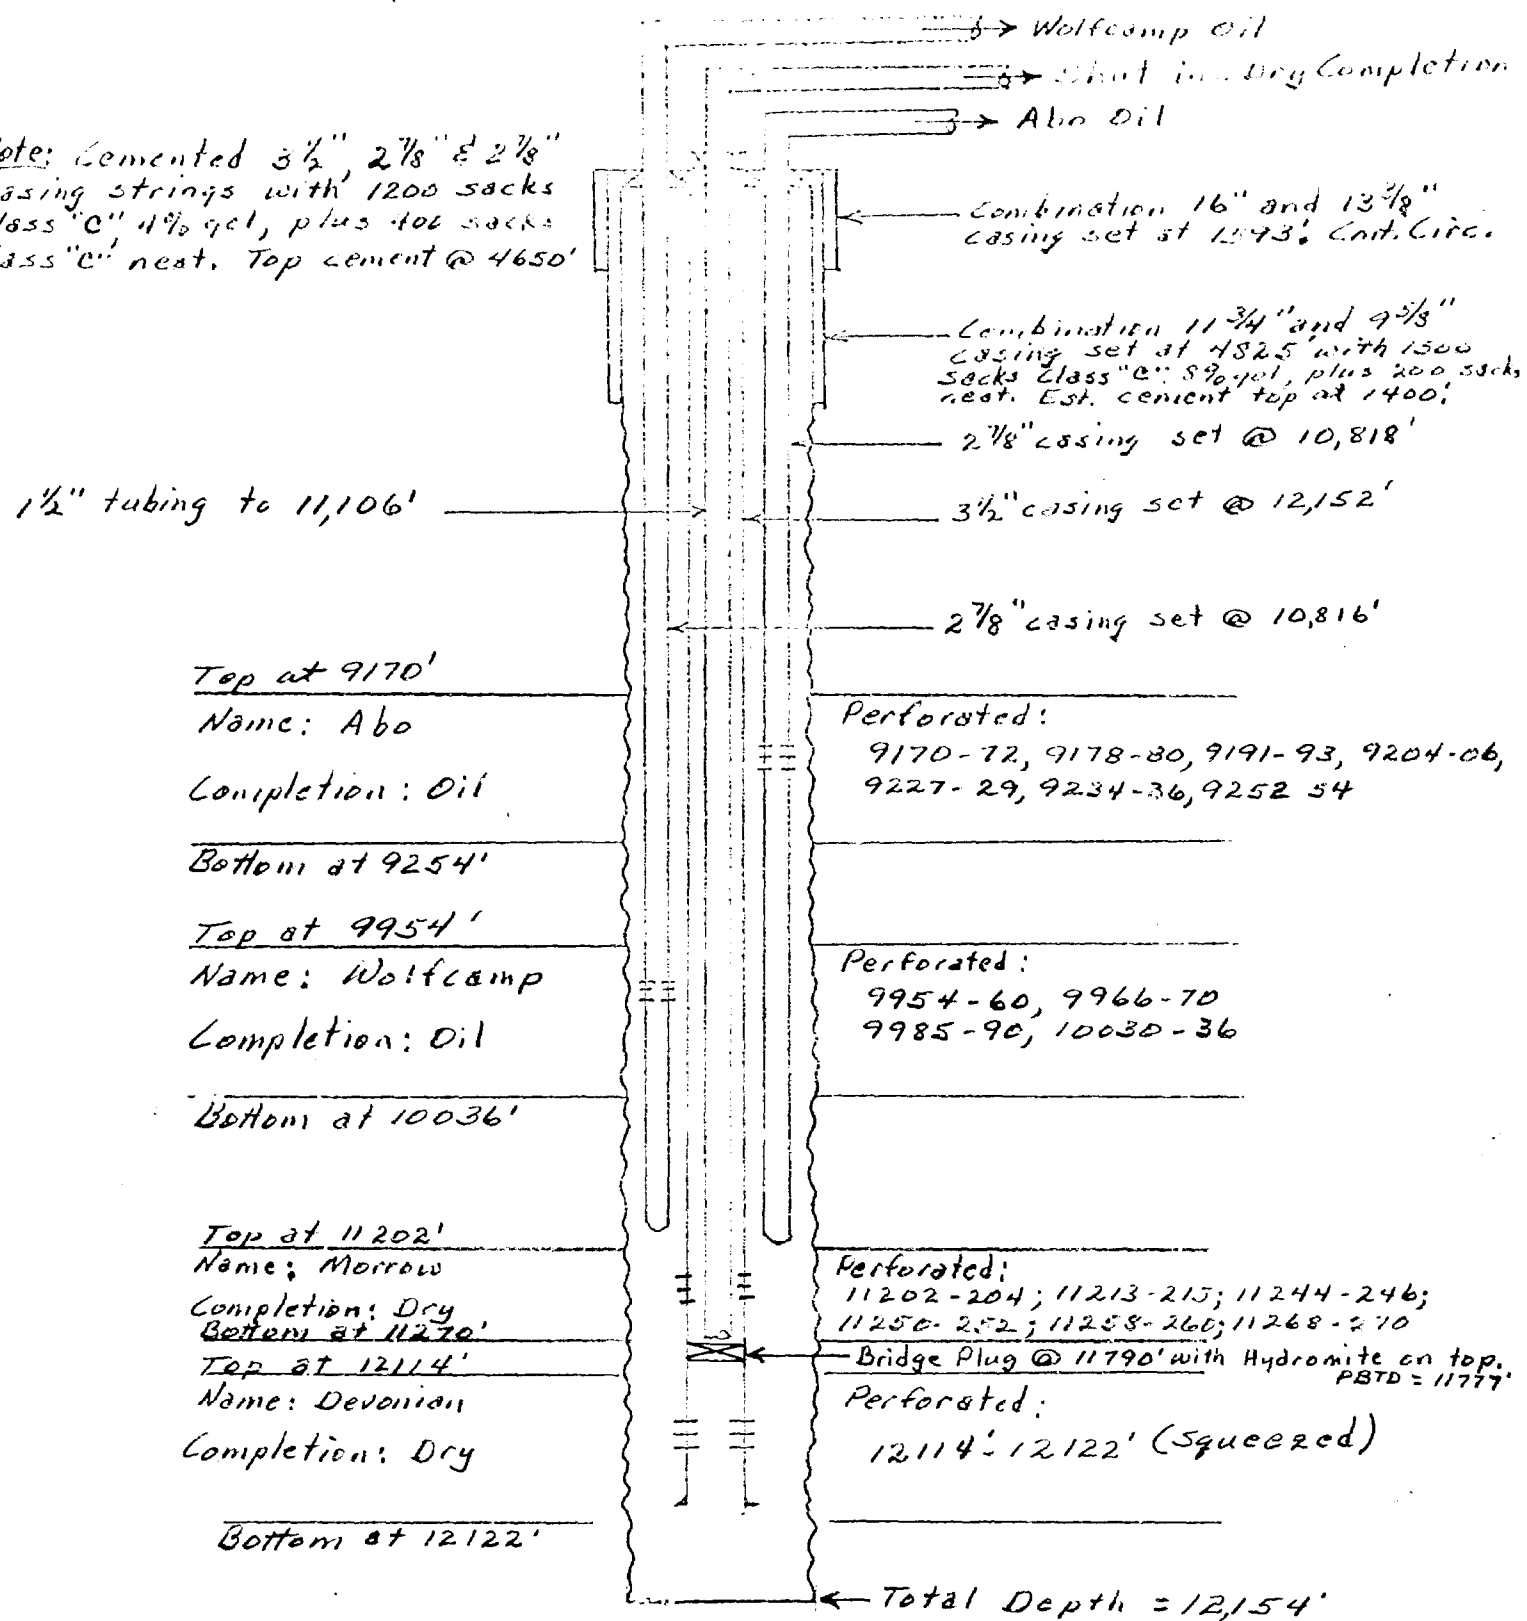 Wolfcamp Oil
Shut in - Dry Completion
Abo Oil
ote: Cemented 3½", 2⅞" & 2⅞"
asing strings with 1200 sacks
lass "C" 4% gel, plus 400 sacks
lass "C" neat. Top cement @ 4650'
Combination 16" and 13⅜"
casing set at 1593'. Cmt. Circ.
Combination 11¾" and 9⅝"
casing set at 4825' with 1500
sacks Class "C" 8% gel, plus 200 sacks
neat. Est. cement top at 1400'.
2⅞" casing set @ 10,818'
1½" tubing to 11,106'
3½" casing set @ 12,152'
2⅞" casing set @ 10,816'
Top at 9170'
Name: Abo
Completion: Oil
Bottom at 9254'
Perforated:
9170-72, 9178-80, 9191-93, 9204-06,
9227-29, 9234-36, 9252 54
Top at 9954'
Name: Wolfcamp
Completion: Oil
Bottom at 10036'
Perforated:
9954-60, 9966-70
9985-90, 10030-36
Top at 11202'
Name: Morrow
Completion: Dry
Bottom at 11270'
Perforated:
11202-204; 11213-215; 11244-246;
11250-252; 11258-260; 11268-270
Bridge Plug @ 11790' with Hydromite on top.
PBTD = 11777'
Top at 12114'
Name: Devonian
Completion: Dry
Bottom at 12122'
Perforated:
12114'-12122' (Squeezed)
Total Depth = 12,154'